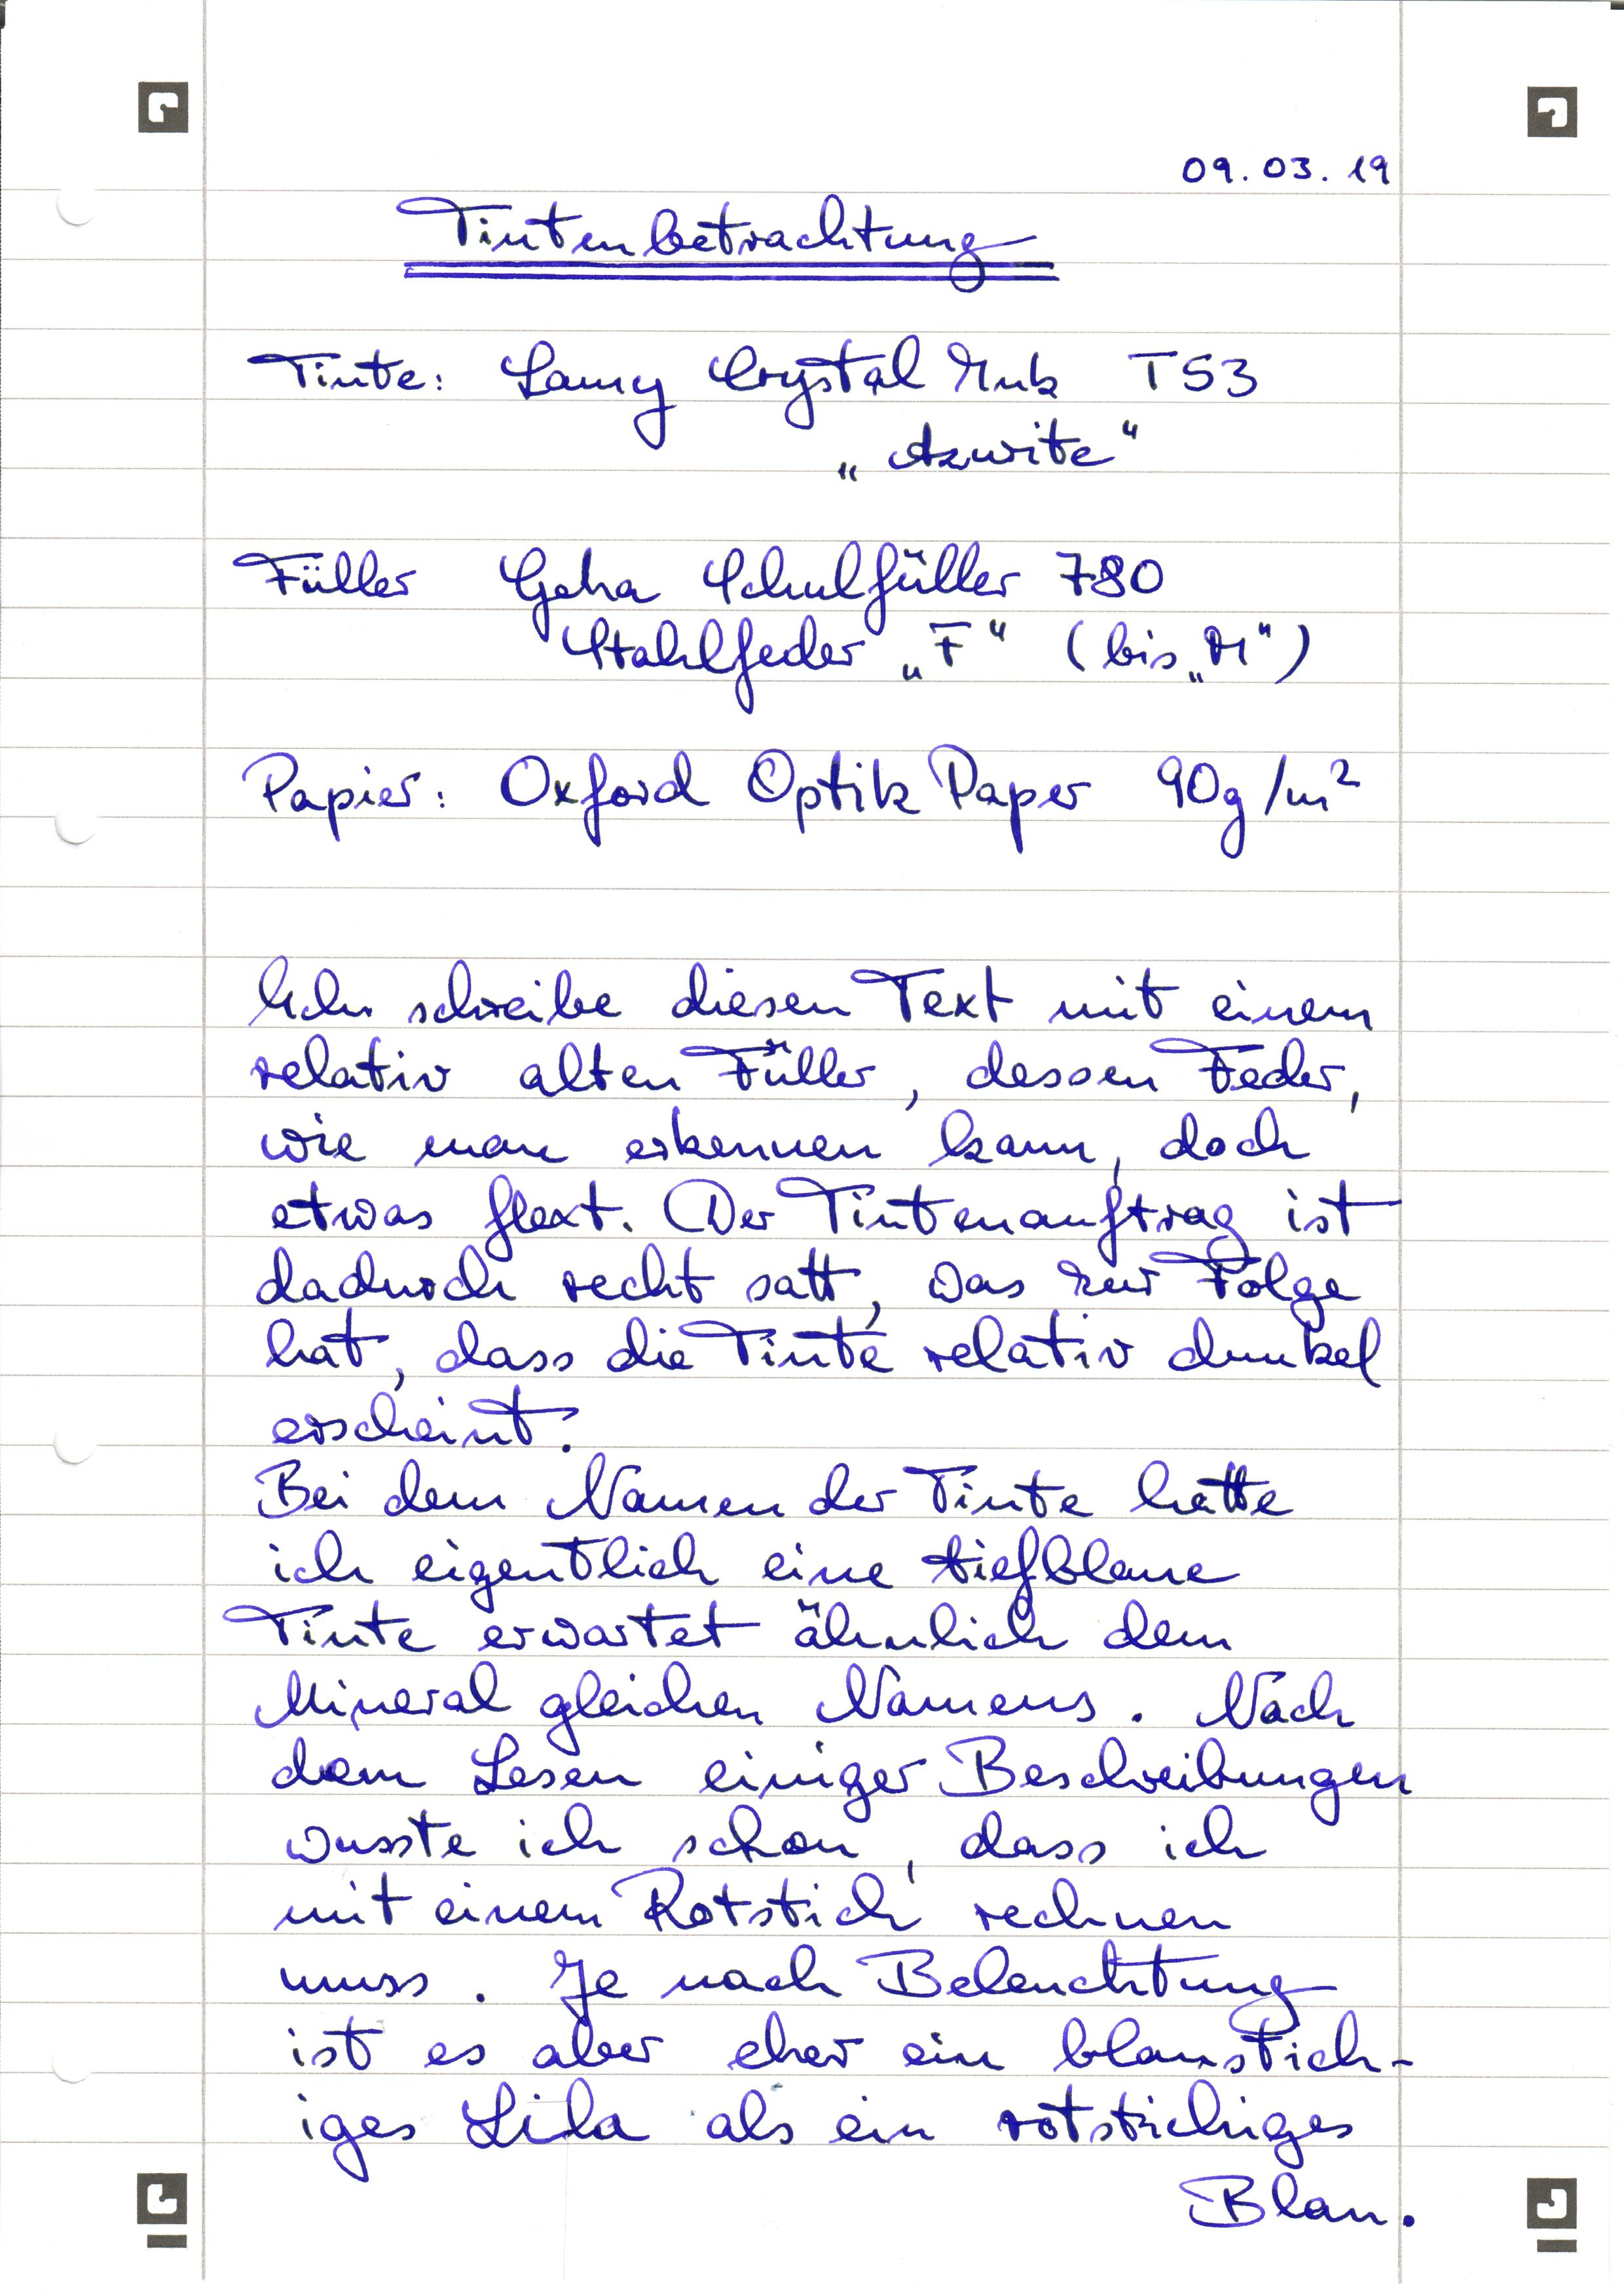 09.03.19
Tintenbetrachtung
Tinte: Lamy Crystal Ink T53
„Azurite“
Füller Geha Schulfüller 780
Stahlfeder „F“ (bis „M“)
Papier: Oxford Optik Paper 90g/m²
Ich schreibe diesen Text mit einem
relativ alten Füller, dessen Feder,
wie man erkennen kann, doch
etwas flext. Der Tintenauftrag ist
dadurch recht satt, was zur Folge
hat, dass die Tinte relativ dunkel
erscheint.
Bei dem Namen der Tinte hätte
ich eigentlich eine tiefblaue
Tinte erwartet ähnlich dem
Mineral gleichen Namens. Nach
dem Lesen einiger Beschreibungen
wusste ich schon, dass ich
mit einem Rotstich rechnen
muss. Je nach Beleuchtung
ist es aber eher ein blaustich-
iges Lila als ein rotstichiges
Blau.